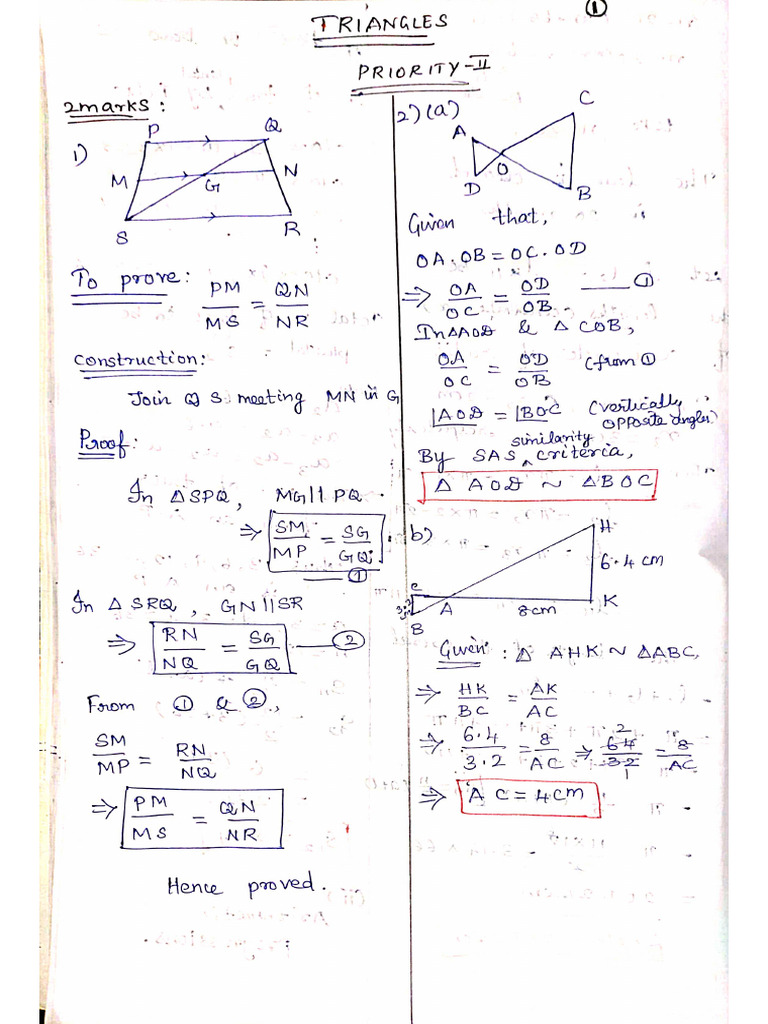 ①
TRIANGLES
PRIORITY-II
2marks:
1)
P
Q
M
G
N
S
R
To prove: PM/MS = QN/NR
Construction:
Join QS meeting MN in G
Proof:
In △SPQ, MG||PQ.
⇒ SM/MP = SG/GQ.
—— ①
In △SRQ, GN||SR
⇒ RN/NQ = SG/GQ —— ②
From ① & ②,
SM/MP = RN/NQ
⇒ PM/MS = QN/NR
Hence proved.
2)(a)
A
C
O
D
B
Given that,
OA.OB = OC.OD
⇒ OA/OC = OD/OB. —— ①
In △AOD & △COB,
OA/OC = OD/OB (from ①
∠AOD = ∠BOC (vertically
opposite angles)
By SAS similarity criteria,
△AOD ~ △BOC
b)
H
6.4 cm
C
3.2
A
8cm
K
B
Given: △AHK ~ △ABC,
⇒ HK/BC = AK/AC
⇒ 6.4/3.2 = 8/AC ⇒ 2 64/32 1 = 8/AC
⇒ AC = 4cm